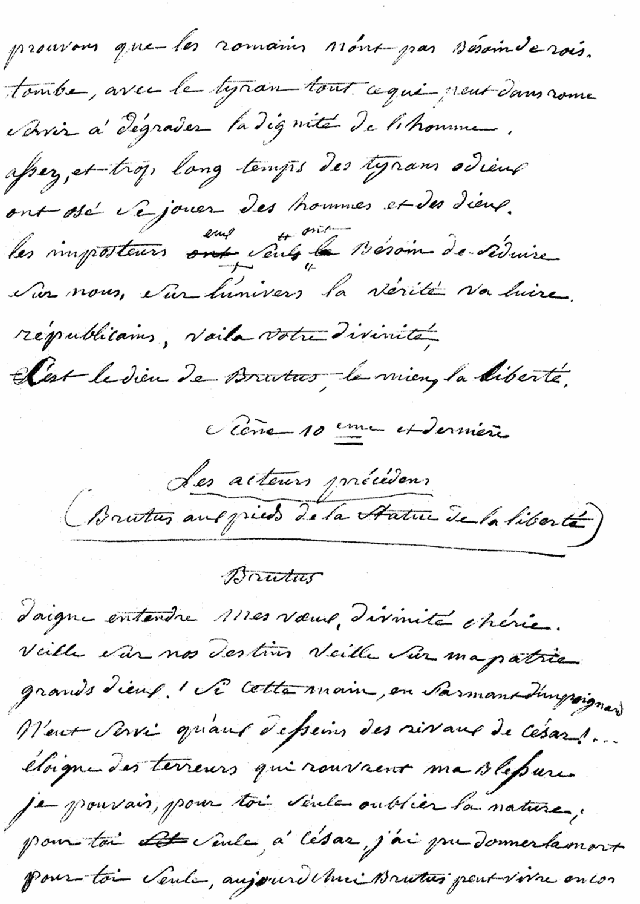 prouvons que les romains n'ont pas Bésoin de rois.
tombe, avec le tyran tout ce qui peut dans rome
servir a dégrader la dignité de l'homme.
assez, et trop long temps des tyrans odieux
ont osé se jouer des hommes et des dieux.
eux ont
les imposteurs ont seuls le Bésoin de séduire
sur nous, sur l'univers la vérité va luire.
républicains, voila votre divinité,
C'est le dieu de Brutus, le mien, la liberté.
Scêne 10 eme et derniere
Les acteurs précédens
(Brutus aux pieds de la Statue de la liberté)
Brutus
daigne entendre mes vœux, divinité chérie.
veille sur nos destins veille sur ma patrie
grands dieux! Si cette main, en s'armant d'un poignard
N'eut servi qu'aux desseins des rivaux de César!...
éloigne des terreurs qui rouvrent ma Blessure
je pouvais, pour toi seule oublier la nature;
pour toi seule, à César, j'ai pu donner la mort
pour toi seule, aujourd'hui Brutus peut vivre encor